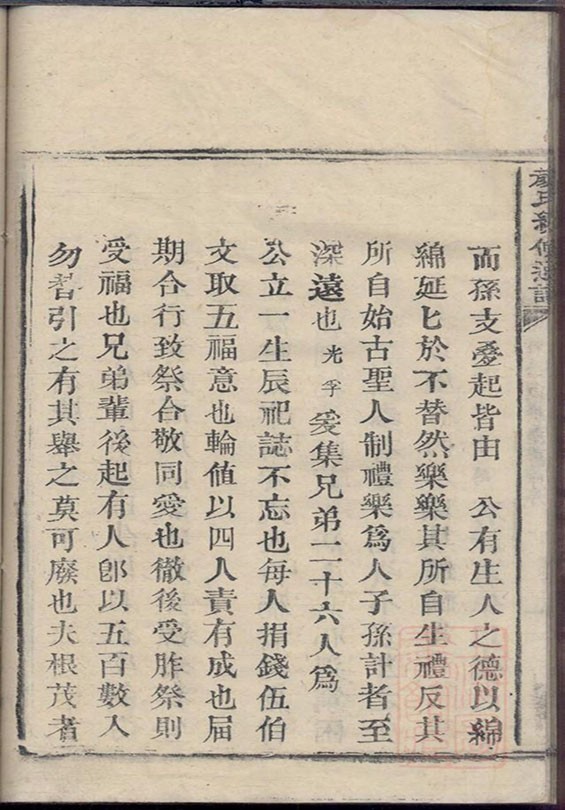 氏
而孫支疊起皆由 公有生人之德以綿
綿延匕於不替然樂樂其所自生禮反其
所自始古聖人制禮樂為人子孫計者至
深遠也光孚爰集兄弟二十六人為
公立一生辰祀誌不忘也每人捐錢伍伯
文取五福意也輪値以四人責有成也屆
期合行致祭合敬同愛也徹後受胙祭則
受福也兄弟輩後起有人卽以五百數入
勿替引之有其舉之莫可廢也夫根茂者